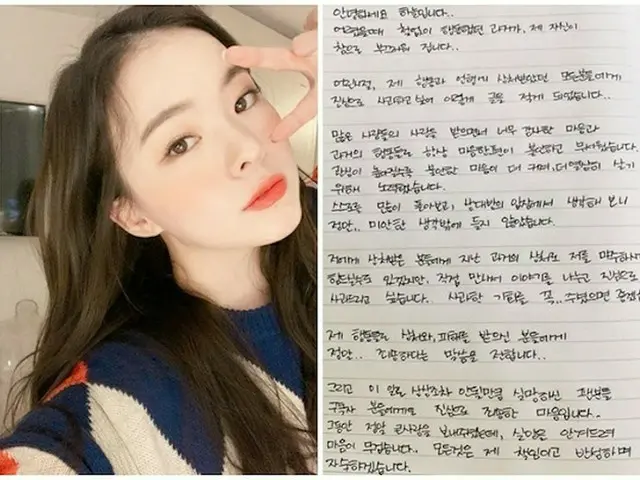 안녕하세요 하늘입니다..
어렸을때 철없이 행동했던 과거가, 제 자신이
참으로 부끄러워 집니다..
어린시절, 제 행동과 언행에 상처받았던 모든분들에게
진심으로 사과하고 싶어 이렇게 글을 적게 되었습니다..
많은 사람들의 사랑을 받으면서 너무 감사한 마음과
과거의 행동들로 항상 마음한편이 불안하고 무서웠습니다.
관심이 높아질수록 불안한 마음이 더 커져, 더 열심히 살기
위해 노력했습니다.
스스로를 많이 돌아보고, 상대방의 입장에서 생각해 보니
정말.. 미안한 생각밖에 들지 않았습니다.
저에게 상처받은 분들에게 지난 과거의 상처로 저를 마주하시
힘드실수도 있겠지만, 직접 만나서 이야기를 나누고 진심으로
사과드리고 싶습니다.. 사과할 기회를 꼭.. 주셨으면 좋겠
제 행동들로 상처와, 피해를 받으신 분들에게
정말.. 죄송하다는 말씀을 전합니다..
그리고 이 일로 상상조차 안될만큼 실망하신 팬분들
구독자 분들에게도 진심으로 죄송한 마음입니다..
그동안 정말 큰사랑을 보내주셨는데, 실망을 안겨드려
마음이 무겁습니다.. 모든것은 제 책임이고 반성하며
자숙하겠습니다.